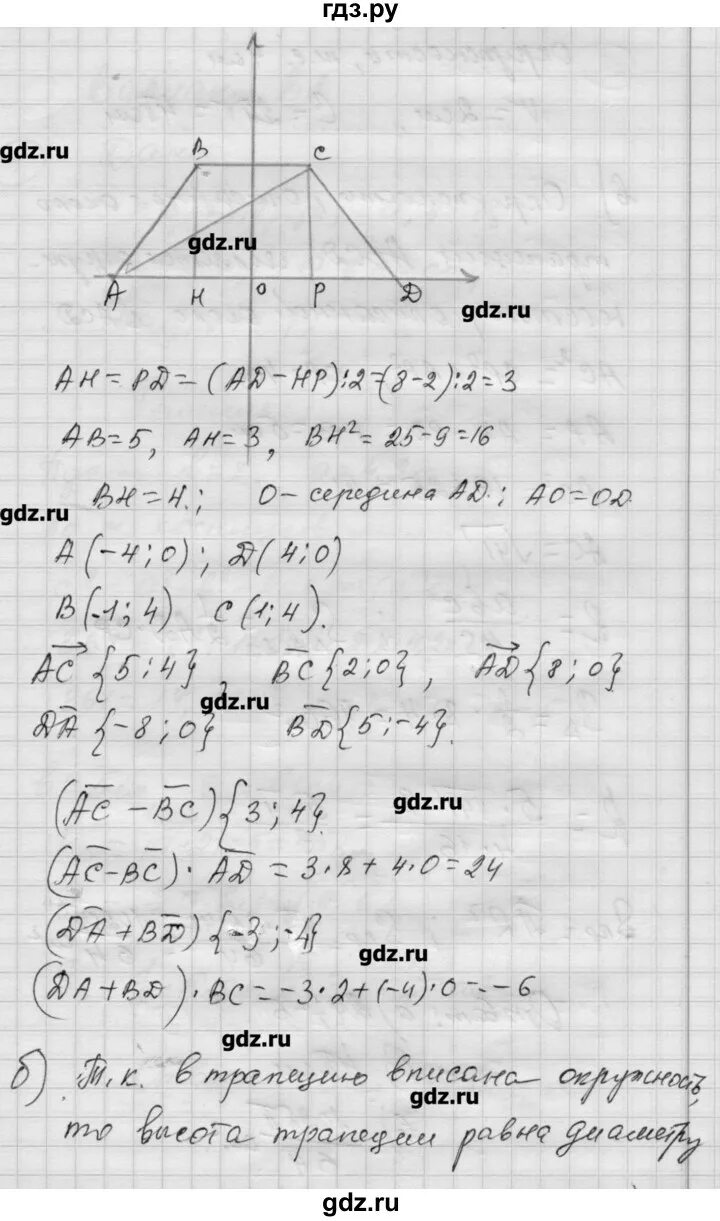 гдз.ру
gdz.ru
B C
gdz.ru
A H O P D
gdz.ru
AH = PD = (AD - HP):2 = (8-2):2 = 3
AB = 5, AH = 3, BH² = 25-9 = 16
BH = 4.; O - середина AD.; AO = OD.
gdz.ru
A(-4;0); D(4;0)
B(-1;4) C(1;4).
AC {5;4}, BC {2;0}, AD {8;0}
gdz.ru
DA {-8;0} BD {5;-4}.
(AC - BC) {3;4}.
gdz.ru
(AC - BC) · AD = 3·8 + 4·0 = 24
(DA + BD) {-3;-4}
gdz.ru
(DA + BD) · BC = -3·2 + (-4)·0 = -6
gdz.ru
б) Т.к. в трапецию вписана окружность,
gdz.ru
то высота трапеции равна диаметру
gdz.ru